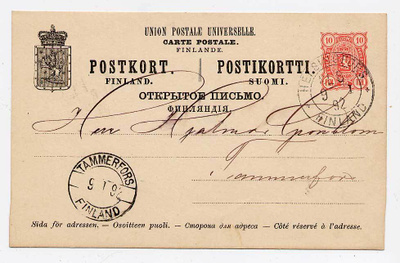 UNION POSTALE UNIVERSELLE.
CARTE POSTALE.
FINLANDE.
POSTKORT. POSTIKORTTI
FINLAND. SUOMI.
ОТКРЫТОЕ ПИСЬМО
ФИНЛЯНДІЯ.
10 10
FINLAND
Herr Hjalmar
Tammerfors
TAMMERFORS
FINLAND
Sida för adressen. - Osoitteen puoli. - Сторона для адреса - Côté réservé à l'adresse.